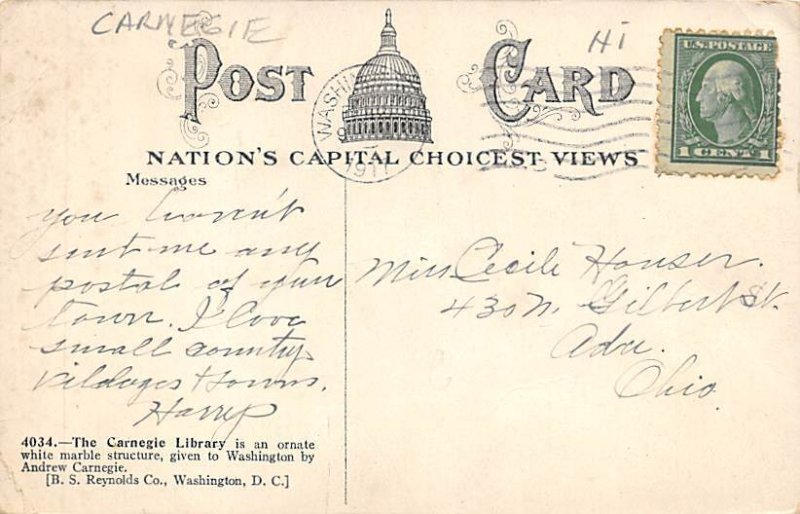 CARNEGIE
HI
POST CARD
U.S. POSTAGE
1 CENT 1
WASHIN
1917
NATION'S CAPITAL CHOICEST VIEWS
Messages
You haven't
sent me any
postal of your
town. I love
small county
villages & towns.
Harry
Miss Cecile Houser.
430 N. Gilbert St.
Ada.
Ohio
4034.—The Carnegie Library is an ornate
white marble structure, given to Washington by
Andrew Carnegie.
[B. S. Reynolds Co., Washington, D. C.]